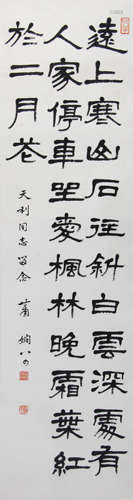 遠上寒山石徑斜白雲深處有
人家停車坐愛楓林晚霜葉紅
於二月花
天利同志留念 蕭嫻八